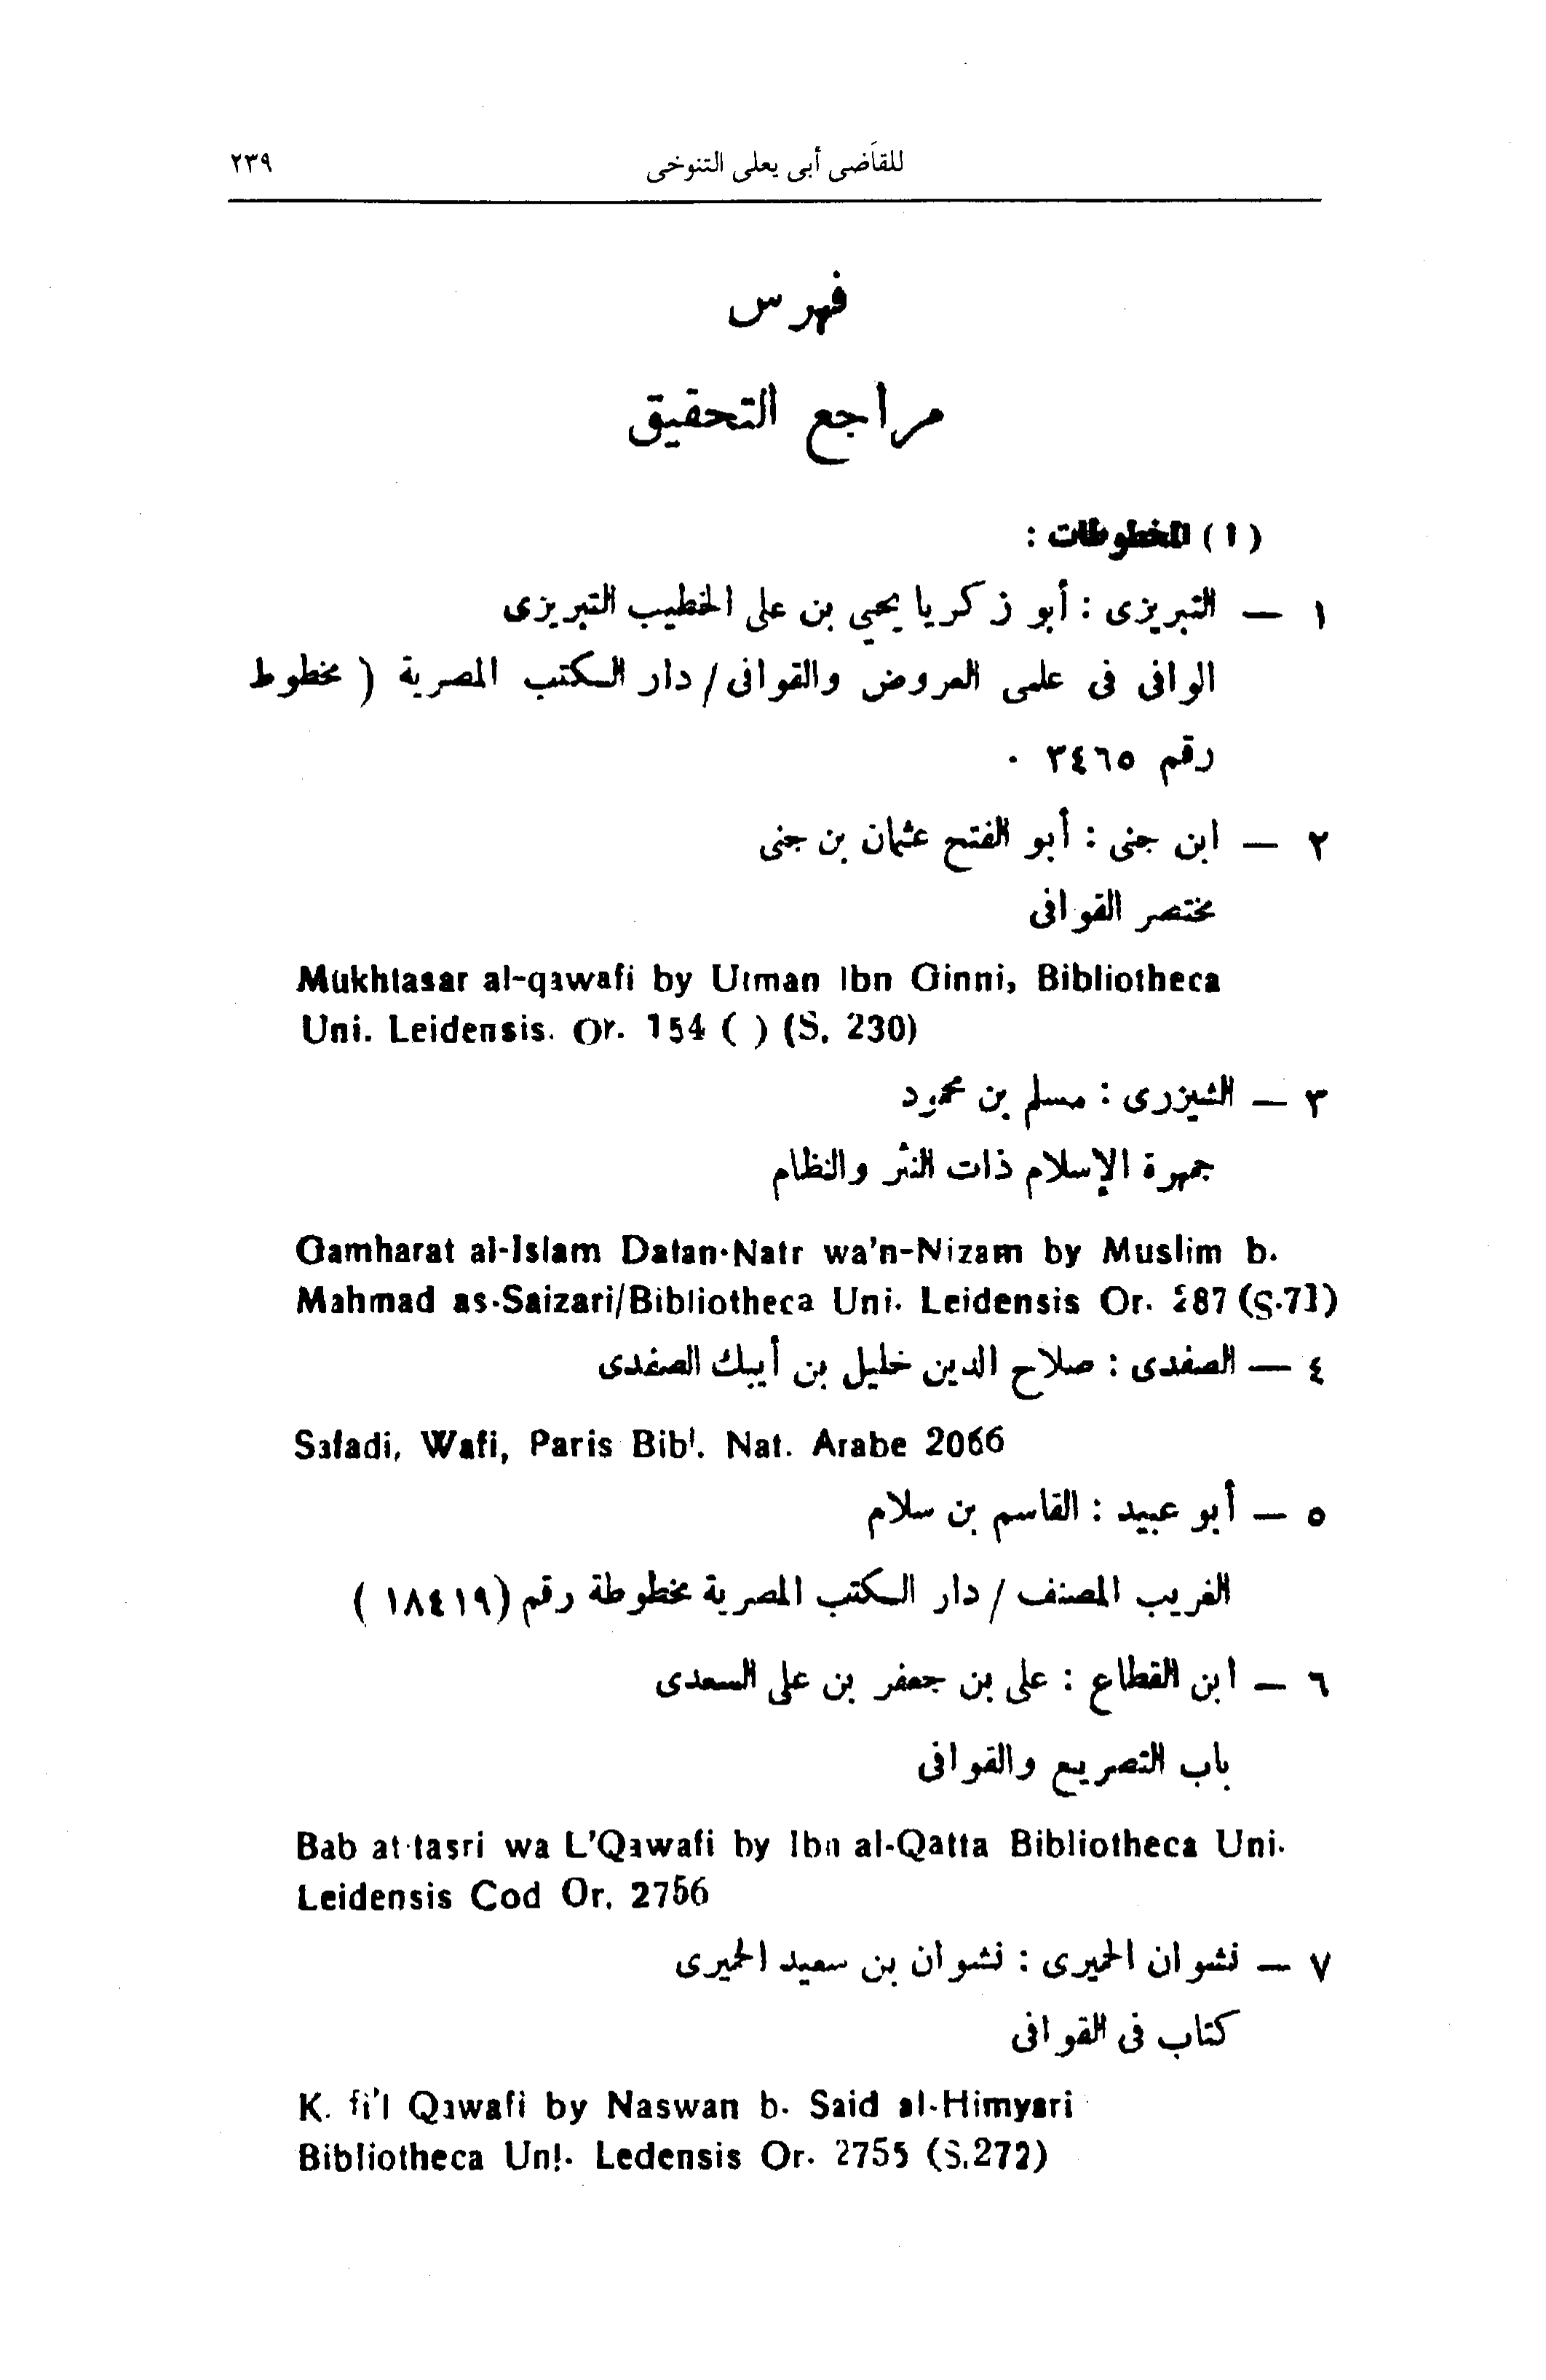 للقاضى أبى يعلى التنوخى ٢٣٩
فهرس
مراجع التحقيق
( ا ) المخطوطات :
١ — التبريزى : أبو زكريا يحيي بن على الخطيب التبريزى
الوافى فى علمى العروض والقوافى / دار الكتب المصرية ( مخطوط
رقم ٣٤٦٥ .
٢ — ابن جنى : أبو الفتح عثمان بن جنى
مختصر القوافى
Mukhtasar al-qawafi by Utman Ibn Ginni, Bibliotheca
Uni. Leidensis. Or. 154 ( ) (S. 230)
٣ — الشيزرى : مسلم بن محمود
جمهرة الإسلام ذات النثر والنظام
Gamharat al-Islam Datan-Natr wa'n-Nizam by Muslim b.
Mahmad as-Saizari/Bibliotheca Uni. Leidensis Or. 287 (S.71)
٤ — الصفدى : صلاح الدين خليل بن أيبك الصفدى
Safadi, Wafi, Paris Bibl. Nat. Arabe 2066
٥ — أبو عبيد : القاسم بن سلام
الغريب المصنف / دار الكتب المصرية مخطوطة رقم (١٨٤١٩ )
٦ — ابن القطاع : على بن جعفر بن على السعدى
باب التصريع والقوافى
Bab at-tasri wa L'Qawafi by Ibn al-Qatta Bibliotheca Uni.
Leidensis Cod Or. 2756
٧ — نشوان الحميرى : نشوان بن سعيد الحميرى
كتاب فى القوافى
K. fi'l Qawafi by Naswan b. Said al-Himyari
Bibliotheca Uni. Ledensis Or. 2755 (S.272)